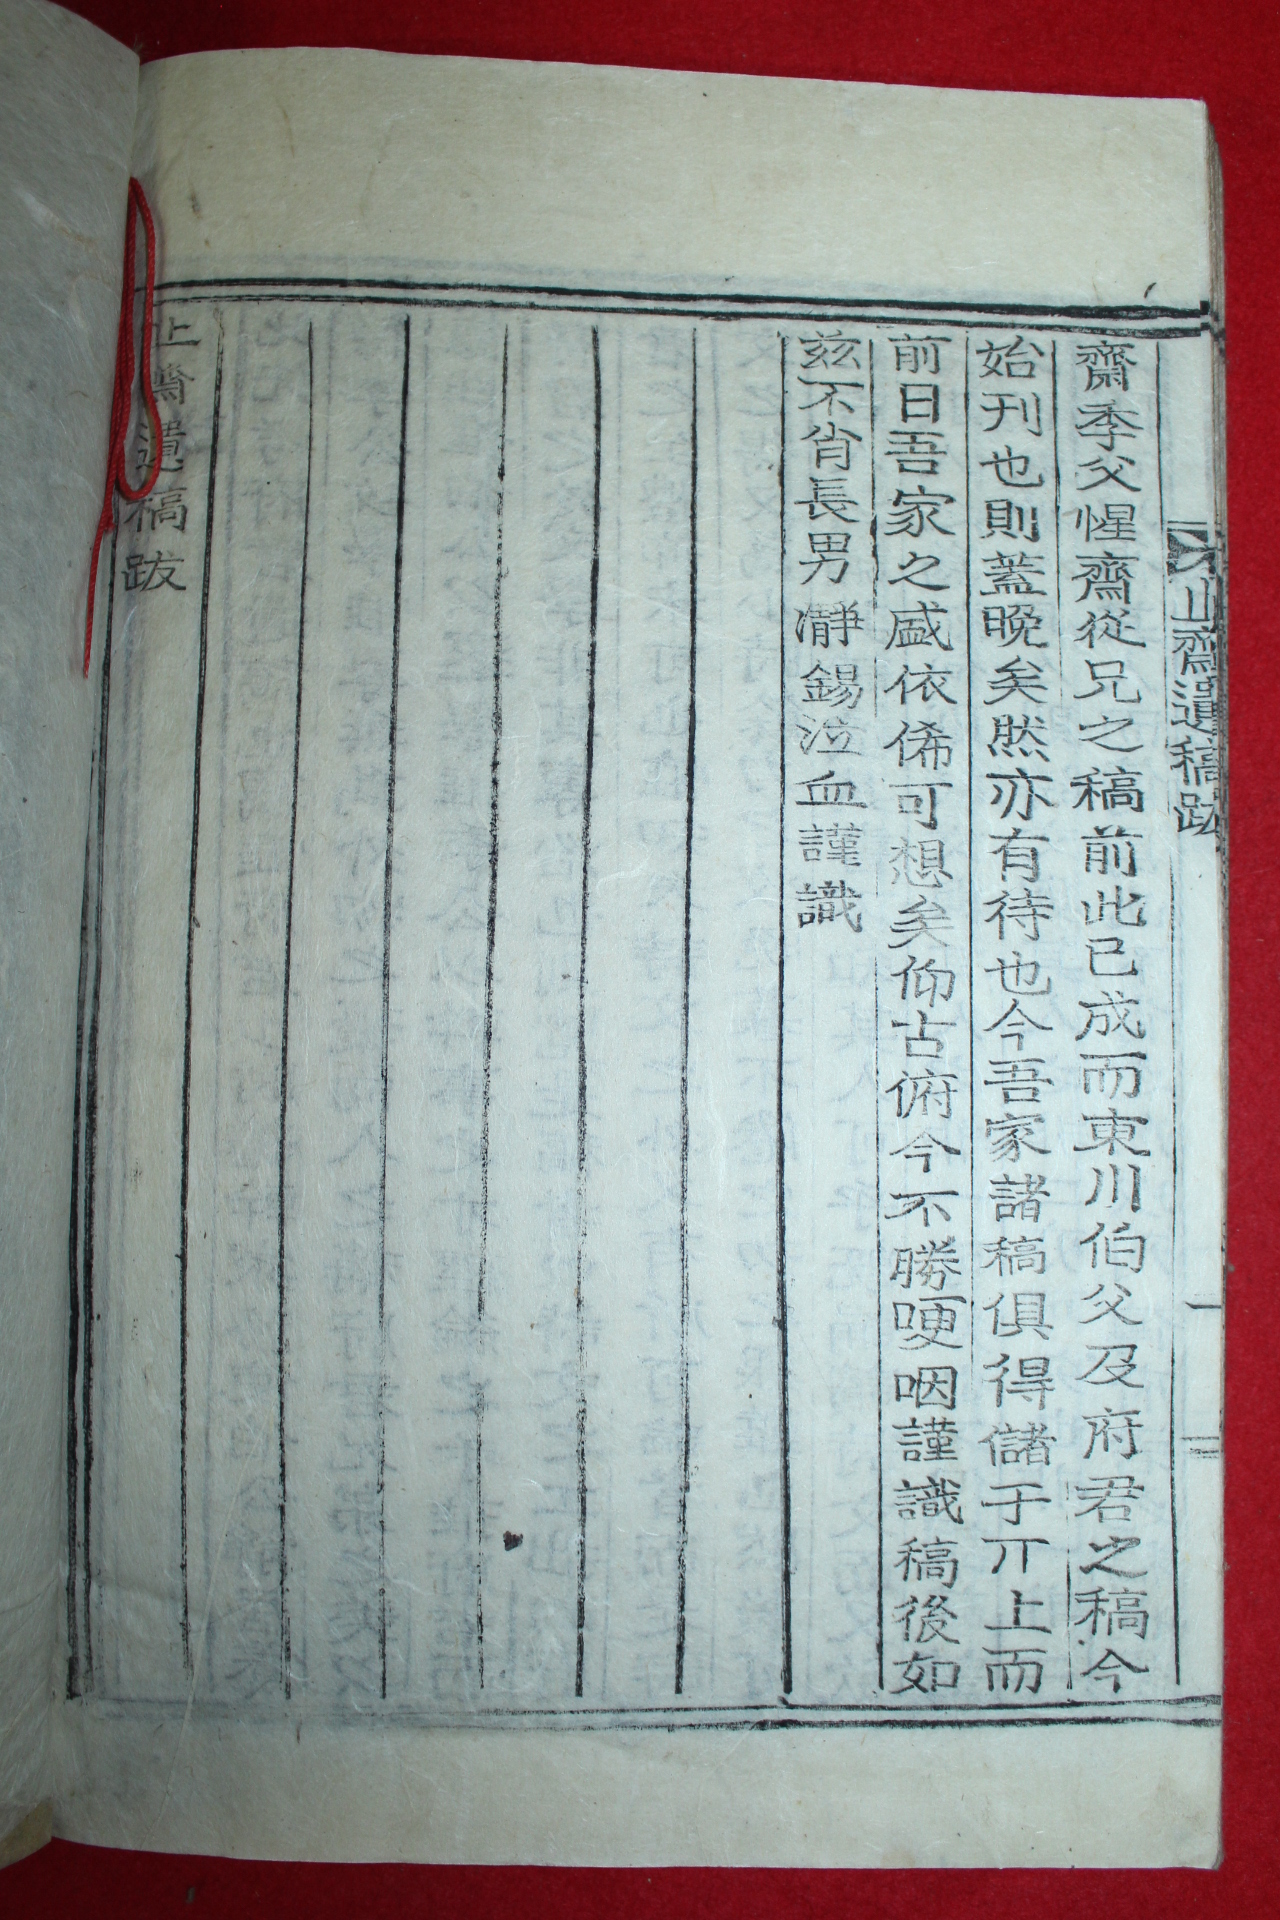 止齋遺稿跋
齋季父惺齋從兄之稿前此已成而東川伯父及府君之稿今
始刊也則蓋晚矣然亦有待也今吾家諸稿俱得儲于丌上而
前日吾家之盛依俙可想矣仰古俯今不勝哽咽謹識稿後如
玆不肖長男瀞錫泣血謹識
止齋遺稿跋